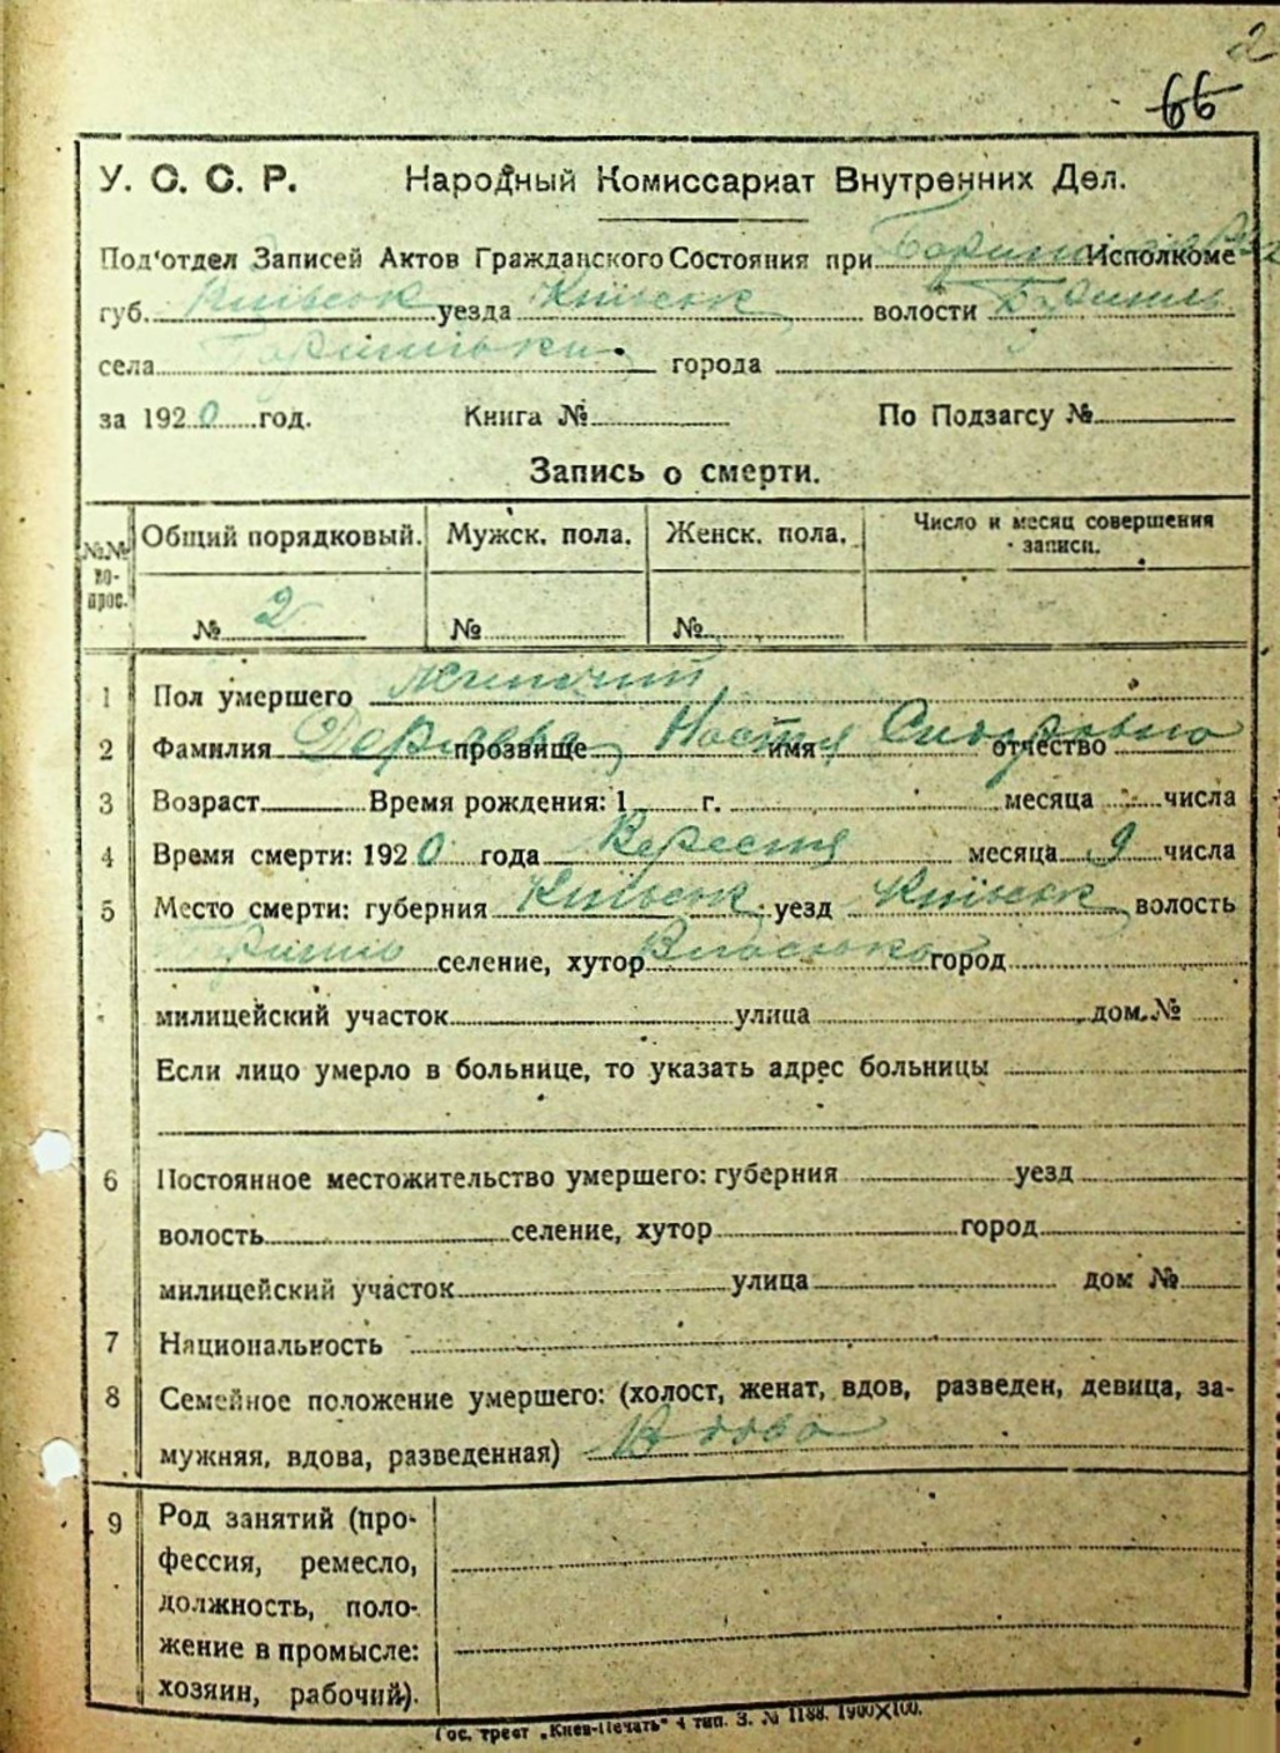 2
66
У. С. С. Р. Народный Комиссариат Внутренних Дел.
Под‘отдел Записей Актов Гражданского Состояния при Исполкоме
губ. Київськ уезда Київськ волости Бориспіль
села города
за 1920 год. Книга № По Подзагсу №
Запись о смерти.
№№ во-прос. Общий порядковый. Мужск. пола. Женск. пола. Число и месяц совершения записи.
№ 2 № №
1 Пол умершего Жіночий
2 Фамилия прозвище Настя имя Сидоровна отчество
3 Возраст Время рождения: 1 г. месяца числа
4 Время смерти: 1920 года Вересня месяца 9 числа
5 Место смерти: губерния Київськ уезд Київськ волость
селение, хутор город
милицейский участок улица дом №
Если лицо умерло в больнице, то указать адрес больницы
6 Постоянное местожительство умершего: губерния уезд
волость селение, хутор город
милицейский участок улица дом №
7 Национальность
8 Семейное положение умершего: (холост, женат, вдов, разведен, девица, за-
мужняя, вдова, разведенная) Вдова
9 Род занятий (про-
фессия, ремесло,
должность, поло-
жение в промысле:
хозяин, рабочий).
Гос. трест „Киев-Печать“ 4 тип. З. № 1188. 1900×100.